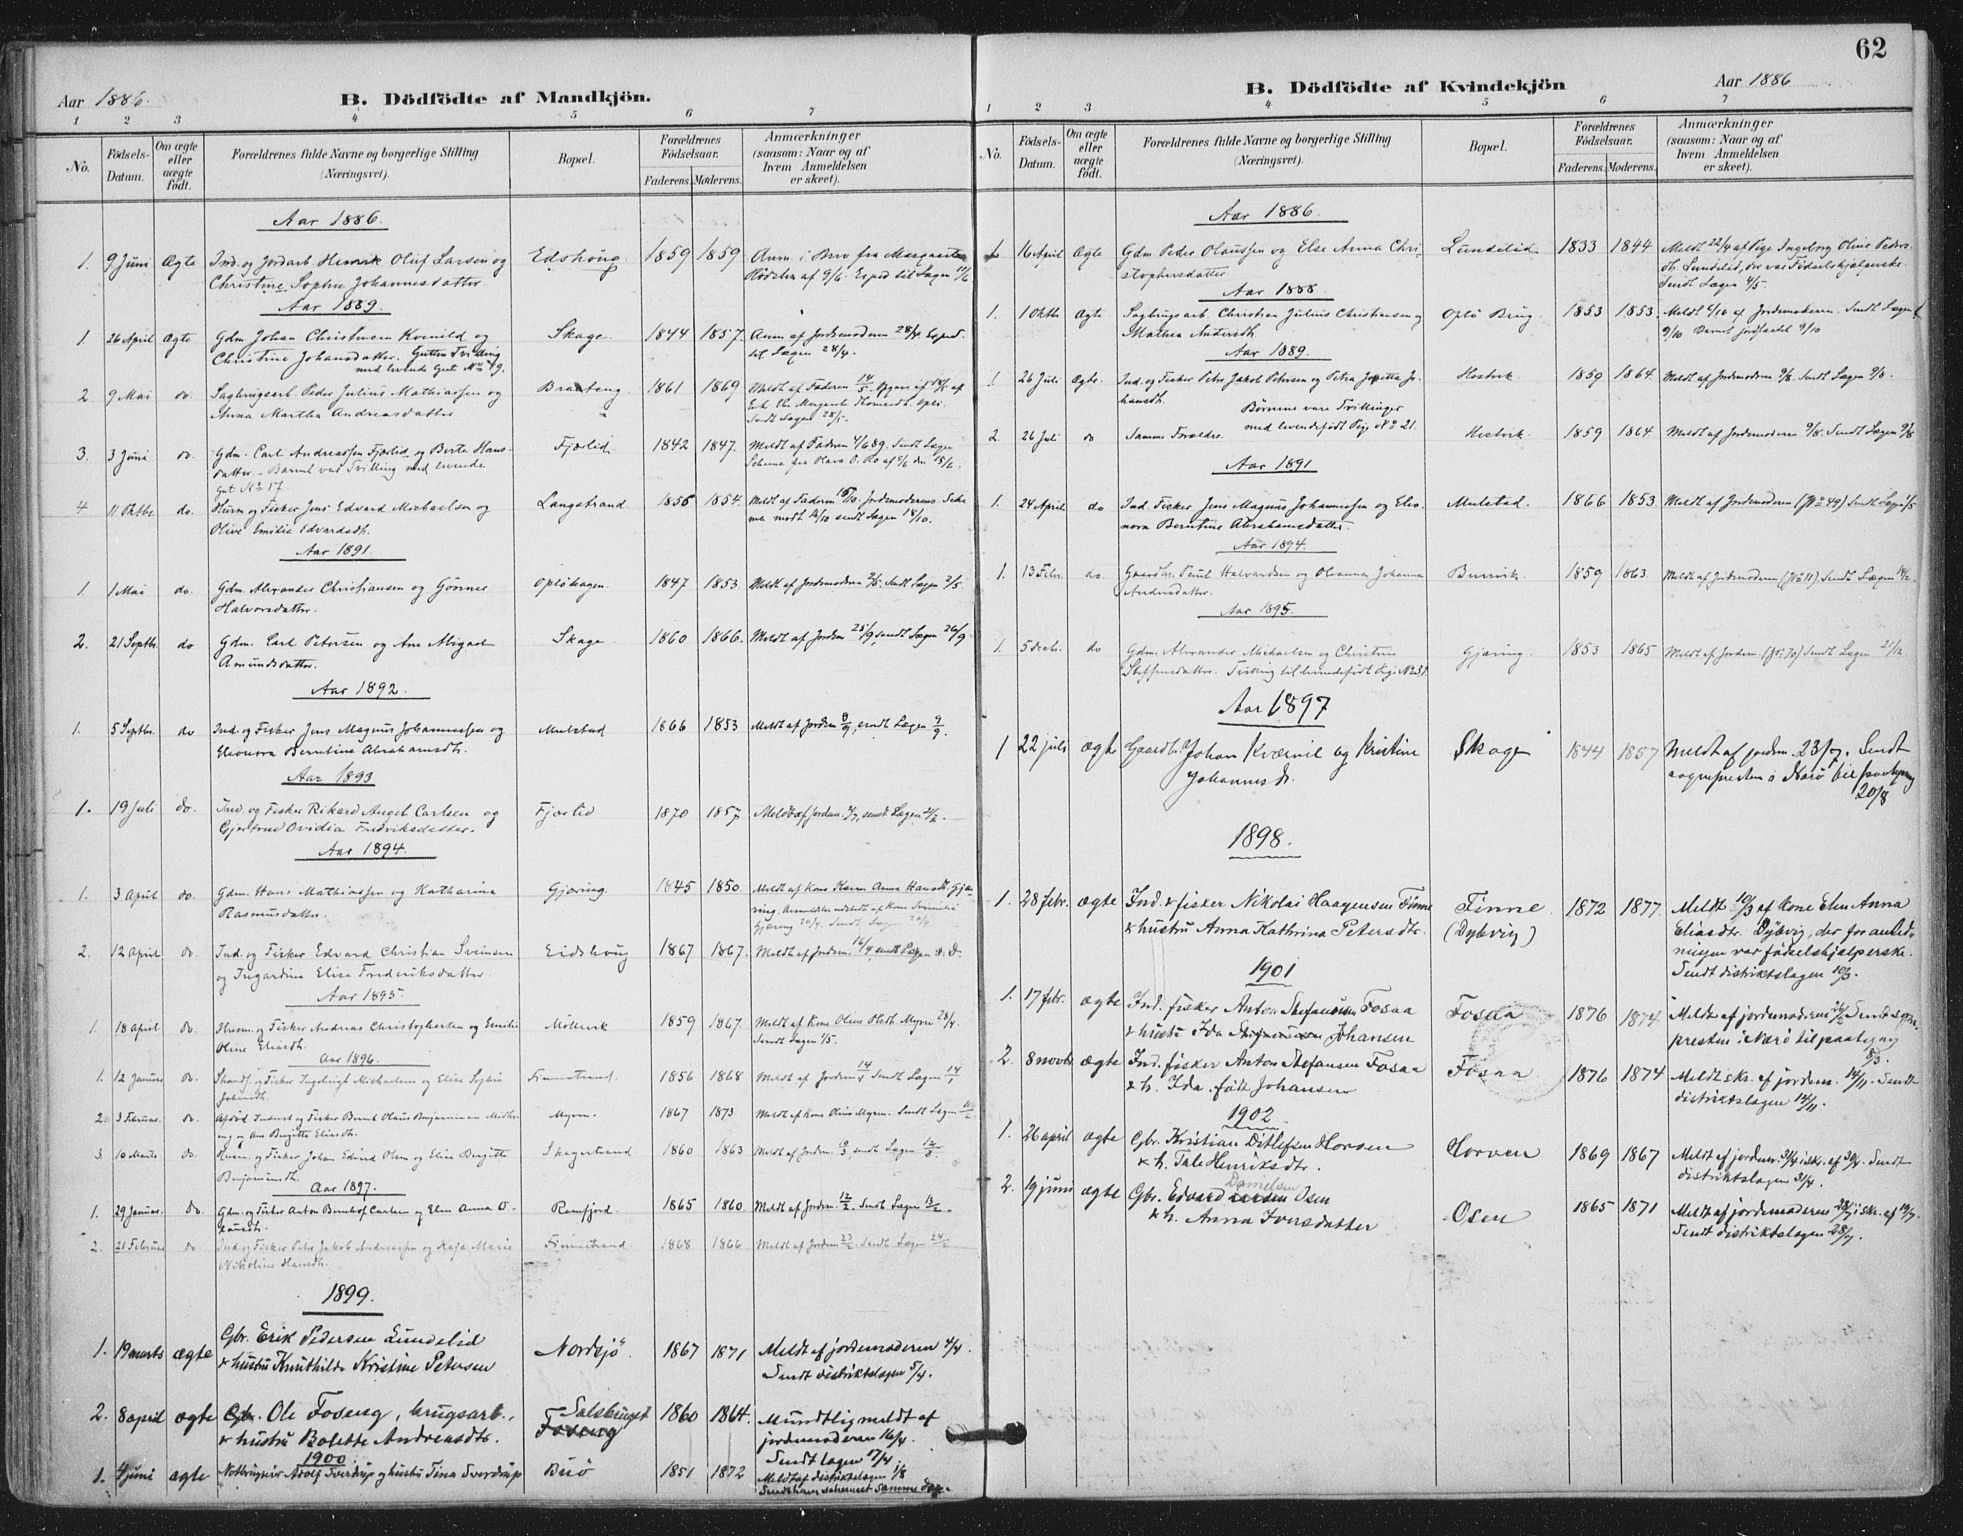 62
Aar 1886.
B. Dödfödte af Mandkjön.
1 2 3 4 5 6 7
No.
Födsels-Datum.
Om ægte eller uægte födt.
Forældrenes fulde Navne og borgerlige Stilling (Næringsvei).
Bopæl.
Forældrenes Födselsaar.
Faderens. Moderens.
Anmærkninger (saasom: Naar og af hvem Anmeldelsen er skeet).
Aar 1886.
1. 9 Juni Ægte Ind. og Jordarb. Henrik Oluf Larsen og Edshoug 1859 1859 Anm. i Brev fra Margarete
Christine Sophie Johannesdatter af 9/6. Exped. til Lægen 10/6
Aar 1889.
1 26 April Ægte Gdm. Johan Christensen Kvenild og Skage 1844 1857. Anm. af Jordemoderen 28/4. Exped.
Christine Johansdatter. Gutten Tvilling til Lægen 28/4.
med levende Gut No 49.
2 9 Mai do. Sagbrugsarb. Peder Julius Mathiassen og Braateng 1861 1869 Meldt af Faderen 14/5.
Anna Martha Andreasdatter. Sendt Lægen 28/5.
3. 3 Juni do. Gdm. Carl Andreassen Fjærlid og Berte Hans- Fjærlid 1842 1847. Meldt af Faderen 4/6 89. Sendt Lægen
datter. Barnet var Tvilling med levende
Gut No 17.
4 11 Oktbr. do. Husm. og Fisker Jens Edvard Michaelsen og Langstrand 1856 1854. Meldt af Faderen 15/10. Jordemoderens Sche-
Olive Emilie Edvardsdt. ma modt. 16/10 sendt Lægen 18/10.
Aar 1891.
1 1 Mai do. Gdm. Alexander Christiansen og Gönner Oplöhagen. 1847 1853 Meldt af Jordemoderen 2/5. Sendt Lægen 2/5.
Halvorsdatter.
2. 21 Septbr. do Gdm. Carl Petersen og Ane Abigael Skage. 1860 1866. Meldt af Jordem. 25/9, sendt Lægen 26/9
Amundsdatter.
Aar 1892.
1. 5 Septbr. do Ind. og Fisker Jens Magnus Johannessen og Mulstad 1866 1853 Meldt af Jordem. 8/9, sendt Lægen 9/9.
Eleonora Berntine Abrahamsdt.
Aar 1893
1. 19 Juli do. Ind. og Fisker Rikard Angel Carlsen og Fjærlid 1870 1857 Meldt af Jordem. sendt Lægen
Gjertrud Ovidia Fredriksdatter.
Aar 1894.
1. 3 April do. Gdm. Hans Mathiassen og Katharina Gjæring. 1845 1850 Meldt af Kone Karen Anna Hansdt. Gjæ-
Rasmusdatter. ring.
Gjæring 20/4. Sendt Lægen 20/4
2. 12 April do. Ind. og Fisker Edvard Christian Svensen Eidshoug 1867 1867. Meldt af Jordem. 16/4, sendt Lægen s. D.
og Ingardine Elise Frederiksdatter.
Aar 1895.
1. 18 April do. Husm. og Fisker Andreas Christophersen og Emilie Möllevik 1859 1867. Meldt af Kone Oline Myrm 28/4.
Oline Eliasdt. Sendt Lægen 1/5.
Aar 1896.
1. 12 Januar do. Ingebrigt Michaelsen og Elise Finnestrand. 1856 1868 Meldt af Jordem. 14/1 Sendt Lægen 14/1
2. 3 Februar. do. og Fisker Bernt Olaus Benjaminsen Myrm. 1867 1873 Meldt af Kone Olive Myrm. Sendt Lægen
og Ane Birgitte Eliasdt.
3 10 Marts do. Husm. og Fisker Johan Edvard Olsen og Elise Birgitte Skagestrand 1860 1863 Meldt af Jordem. sendt Lægen 12/3.
Benjaminsdt.
Aar 1897.
1. 29 Januar do. Gdm. og Fisker Anton Bernhof Carlsen og Elen Anna O- Ramfjord. 1865 1860 Meldt af Jordem. 12/2. Sendt Lægen 13/2.
lausdt.
2. 21 Februar do Ind. og Fisker Peter Jakob Andreassen og Kaja Marie Finnestrand 1868 1866 Meldt af Jordem 23/2. Sendt Lægen 24/2
Nikoline Hansdt.
1899.
1. 19 marts ægte Gbr. Erik Pedersen Lundelid Nordsjö. 1867 1871 Meldt af jordemoderen 4/4.
& hustru Knuthilde Kristine Petersen Sendt distriktslægen 5/4.
2. 8 april ægte Gbr. Ole Foseng, brugsarb., Salsbruget Foseng 1860 1864. Mundtlig meldt af
& hustru Bolette Andreasdtr. jordemoderen 16/4.
Sendt lægen 17/4
1900.
1. 4 juni ægte Adolf Sverdrup og hustru Tina Sverdrup Buö 1851 1872 Meldt af distriktslægen 1/8
Aar 1886
B. Dödfödte af Kvindekjön
1 2 3 4 5 6 7
No.
Födsels-Datum.
Om ægte eller uægte födt.
Forældrenes fulde Navne og borgerlige Stilling (Næringsvei).
Bopæl.
Forældrenes Födselsaar.
Faderens. Moderens.
Anmærkninger (saasom: Naar og af hvem Anmeldelsen er skeet).
Aar 1886.
1 16 April Ægte Gdm. Peder Olaussen og Else Anna Chri- Lundelid 1833 1844 Meldt 22/4 af Pige Ingeborg Oline Peders-
stophersdatter dt. Lundelid, der var Födselshjælperske.
Sendt Lægen 4/5.
Aar 1888.
1. 1 Oktbr. Ægte Sagbrugsarb. Christian Julius Christiansen og Oplö Brug. 1853 1853. Meldt 4/10 af Jordemoderen. Sendt Lægen
Mathea Andersdt. 9/10 Barnet jordfæstet 9/10
Aar 1889.
1 26 Juli Ægte. Ind. og Fisker Peter Jakob Petersen og Petra Josetta Jo- Hestvik. 1859 1864. Meldt af Jordemoderen 9/8. Sendt Lægen 9/8.
hansdt. Börnene vare Tvillinger
med levendefödt Pige No 21.
2. 26 Juli do Samme Forældre. Hestvik. 1859 1864. Meldt af Jordemoderen 9/8. Sendt Lægen 9/8
Aar 1891
1. 24 April do Ind. Fisker Jens Magnus Johannessen og Eleo- Mulstad. 1866 1853. Meldt af Jordemoderen (No 49) Sendt Lægen 1/5
nora Berntine Abrahamsdatter.
Aar 1894.
1. 13 Febr. do. Gaardbr. Paul Halvardsen og Olianna Johanna Burvik. 1859 1863. Meldt af Jordemoderen (No 11) Sendt Lægen
Andersdatter.
Aar 1895.
1. 5 Decbr. do Gdm. Alexander Michaelsen og Christine Gjæring. 1853 1865 Meldt af Jordem. (No 70) Sendt Lægen 21/12.
Steffensdatter. Tvilling til levendefödt Pige No 31
Aar 1897
1 22 juli ægte Gaardbr. Johan Kvævnil og Kristine Skage 1844 1857 Meldt af jordem. 23/7. Sendt
Johannesdt. sognepresten i Nærö til paategning
20/8
1898.
1. 28 febr. ægte Ind. & fisker Nikolai Haagensen Finne Finne (Dybvig) 1872 1877. Meldt 10/3 af kone Elen Anna
& hustru Anna Kathrina Petersdtr. Eliasdtr. Dybvig, der for anled-
ningen var födselshjælperske.
Sendt distriktslægen 10/3.
1901
1. 17 febr. ægte Ind. fisker Anton Stefansen Fosaa Fosaa 1876 1874 Meldt af jordemoderen Sendt sogne-
& hustru Ida Johansen presten i Nærö til paategning
8/3.
2. 8 novbr. ægte Ind. fisker Anton Stefansen Fosaa Fosaa 1876 1874 Meldt skr. af jordem. 14/11. Sendt
& h. Ida född Johansen distriktslægen 14/11.
1902
1. 26 april ægte Gbr. Kristian Ditlefsen Horven Horven 1869 1867 Meldt af jordem. 3/4 i skr. af 30/4. Sendt
& h. Tale Henriksdtr. distriktslægen 3/4.
2. 19 juni ægte Gbr. Edvard Danielsen Osen Osen 1865 1871 Meldt af jordemoderen 28/7 i skr. af
& h. Anna Iversdatter Sendt distriktslægen 28/7.